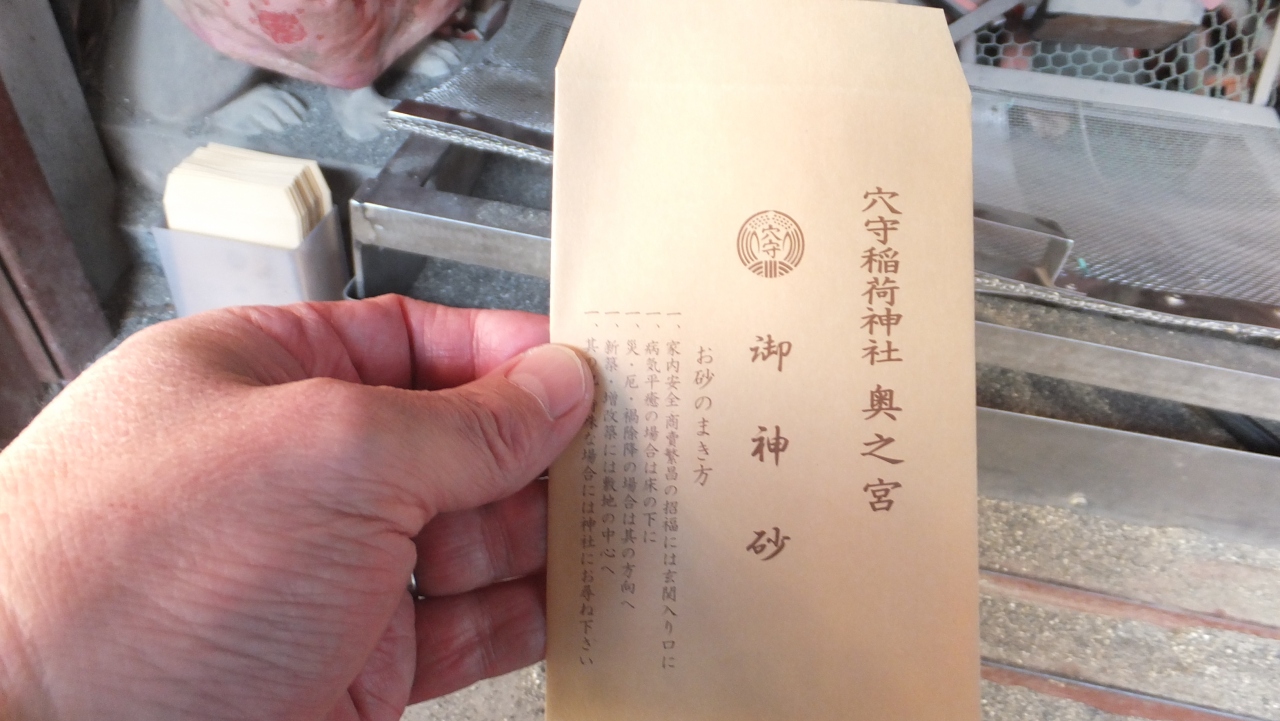 穴守稲荷神社 奥之宮
穴守
御神砂
お砂のまき方
一、家内安全 商賣繁昌の招福には玄関入り口に
一、病気平癒の場合は床の下に
一、災・厄・禍除降の場合は其の方向へ
一、新築・増改築には敷地の中心へ
一、其 な場合には神社にお尋ね下さい